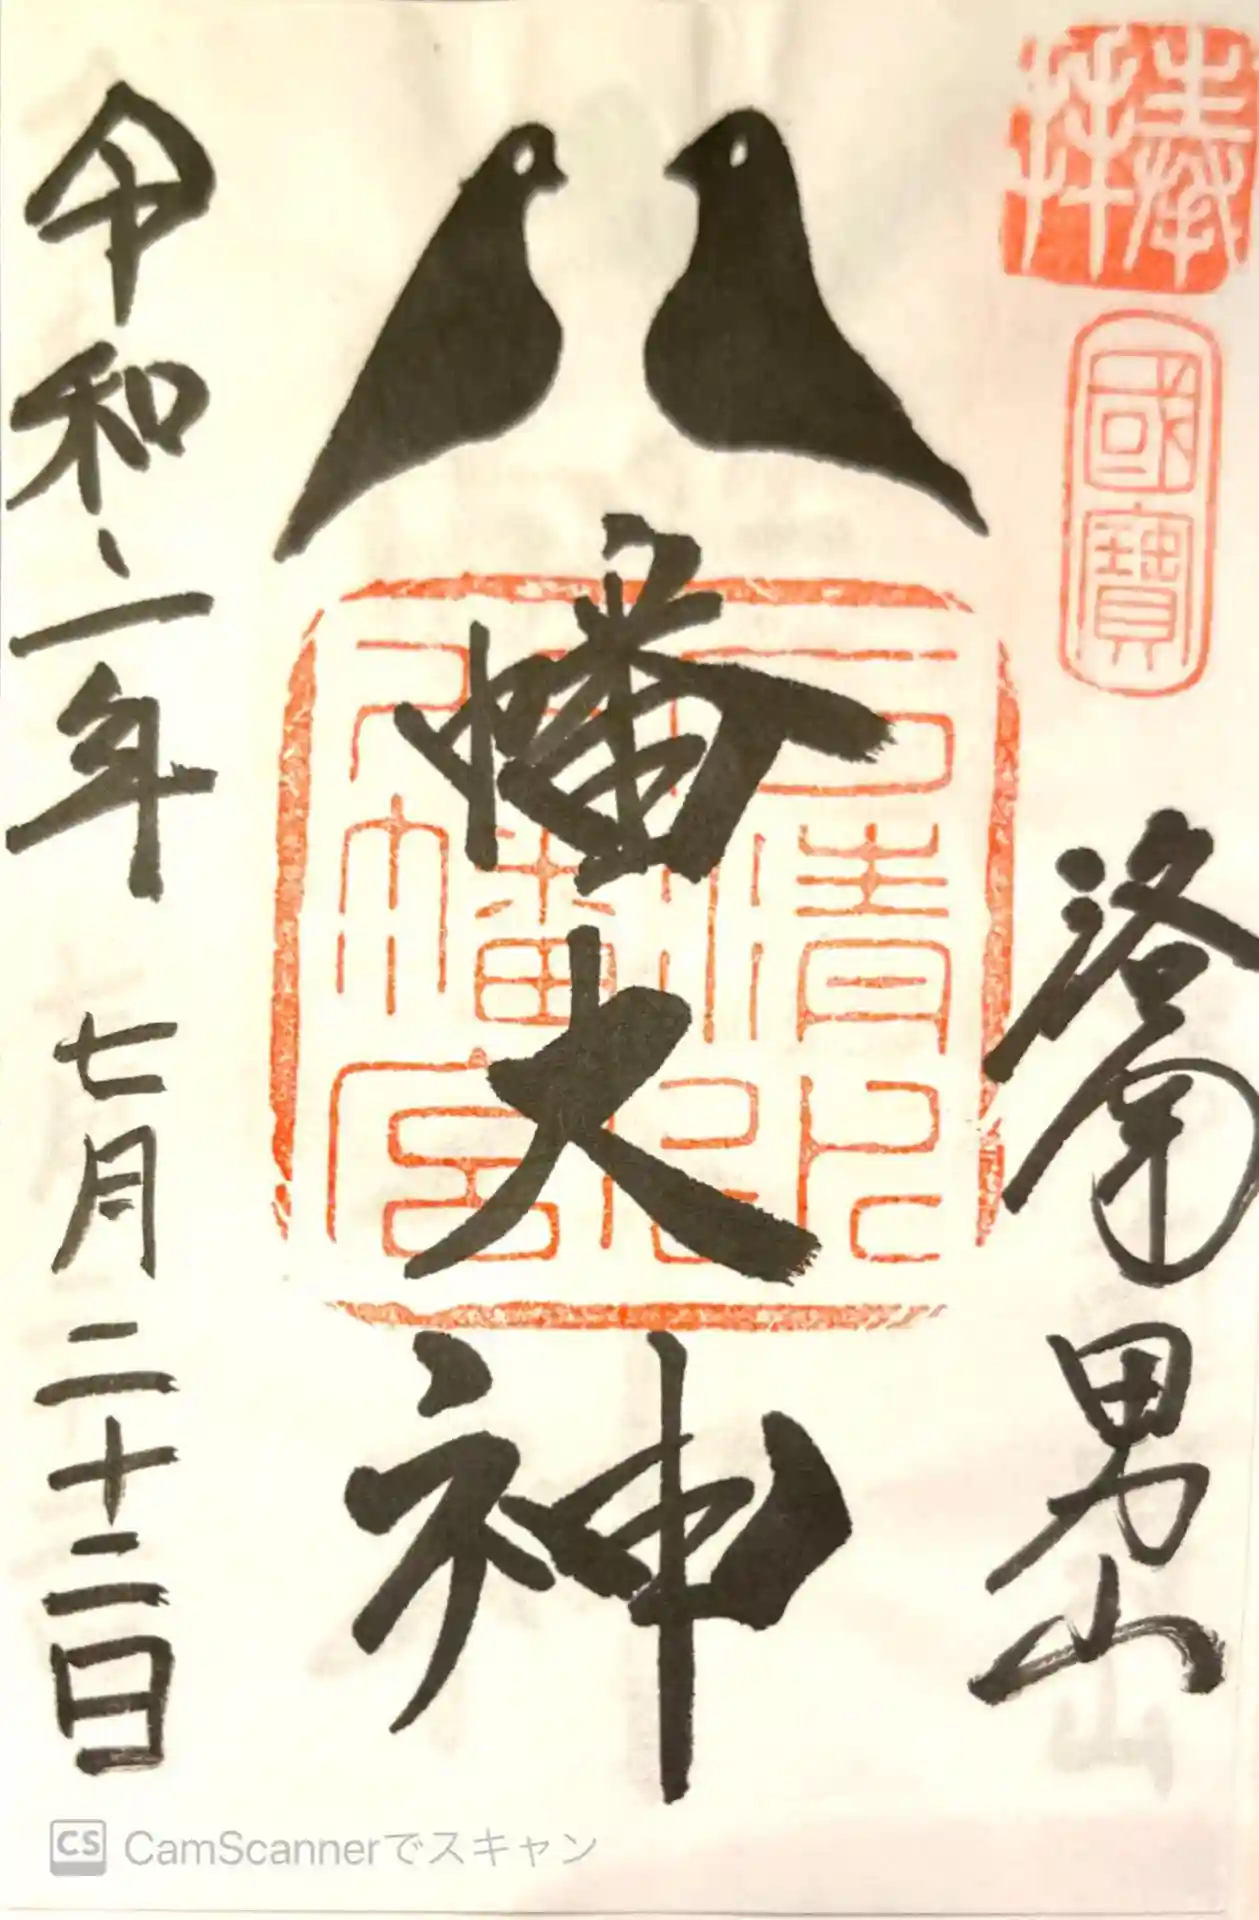 奉拝
國寶
洛南男山
幡大神
石清水
八幡宮
令和二年 七月二十二日
CS CamScannerでスキャン